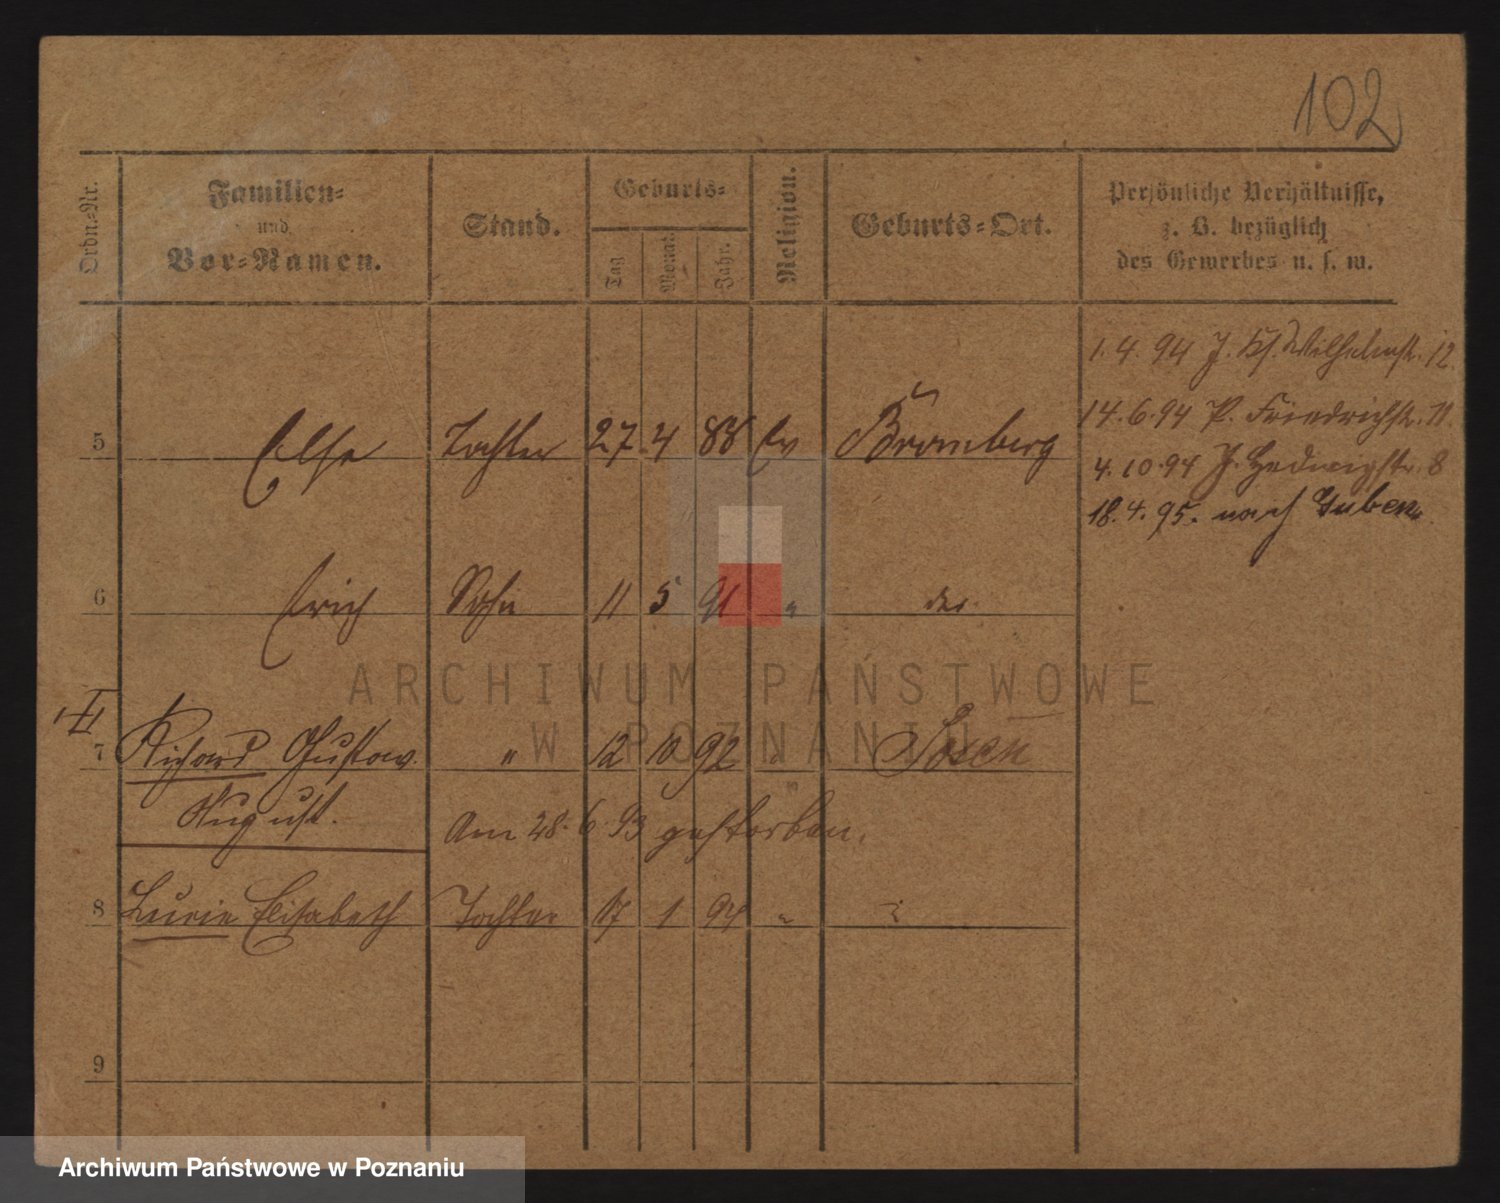 102
Ordn.-Nr.
Familien-
und
Vor-Namen.
Stand.
Geburts-
Tag
Monat
Jahr.
Religion.
Geburts-Ort.
Persönliche Verhältnisse,
z. B. bezüglich
des Gewerbes u. s. w.
1.4.94 J. Wilhelmstr. 12.
14.6.94 P. Friedrichstr. 11.
4.10.94 J. Hedwigstr. 8
18.4.95. nach Guben.
5 Else Tochter 27 4 88 Ev Bromberg
6 Erich Sohn 11 5 91 "
7 Richard Gustav " 12 10 92 " Posen
August. Am 28.6.93 gestorben.
8 Elisabeth Tochter 17 1 94 "
9
ARCHIWUM PAŃSTWOWE
W POZNANIU
Archiwum Państwowe w Poznaniu